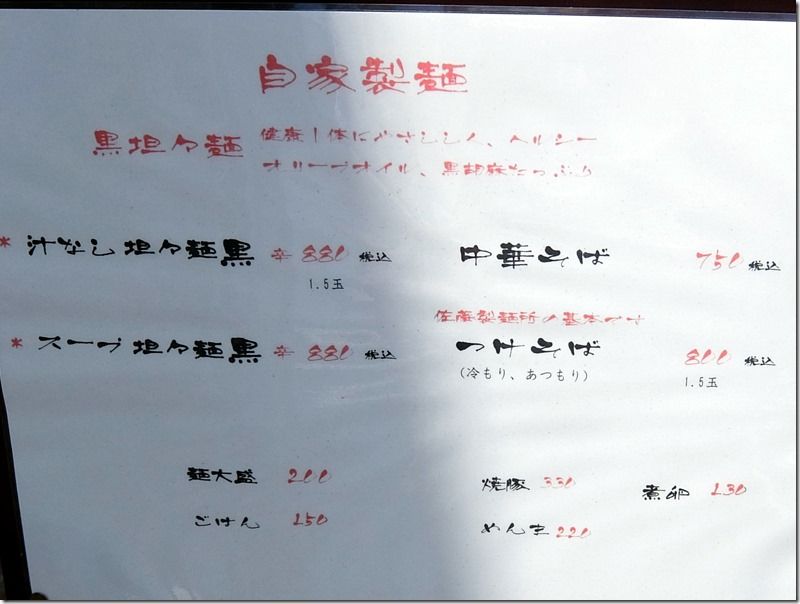 自家製麺
黒坦々麺 健康!体にやさしく、ヘルシー
オリーブオイル、黒胡麻たっぷり
* 汁なし坦々麺黒 辛 880 税込
1.5玉
* スープ坦々麺黒 辛 880 税込
麺大盛 200
ごはん 150
中華そば 750 税込
佐庵製麺所の基本です
つけそば 800 税込
(冷もり、あつもり) 1.5玉
焼豚 330 煮卵 130
めんま 220